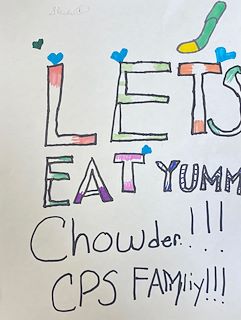 LETS
EAT YUMM
Chowder!!!
CPS FAMliy!!!